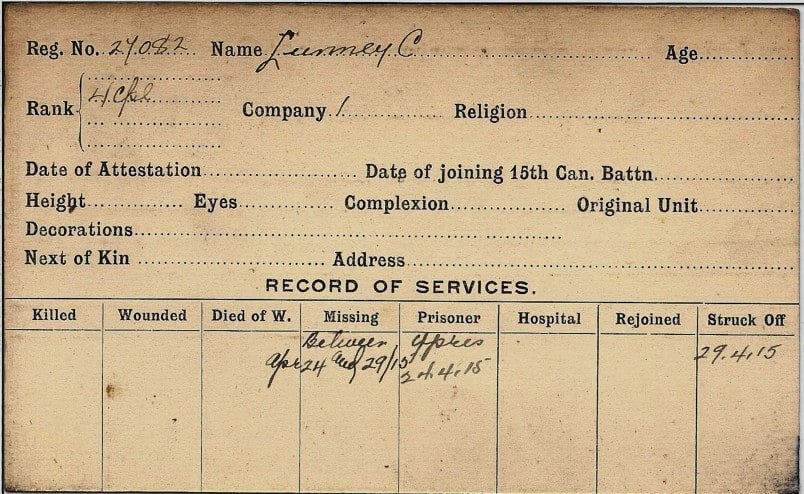 Reg. No. 27082 Name Lunney C Age
Rank L/Cpl Company 1 Religion
Date of Attestation Date of joining 15th Can. Battn.
Height Eyes Complexion Original Unit
Decorations
Next of Kin Address
RECORD OF SERVICES.
Killed Wounded Died of W. Missing Prisoner Hospital Rejoined Struck Off
Between Ypres
Apr 24 and 29/15 24.4.15 29.4.15